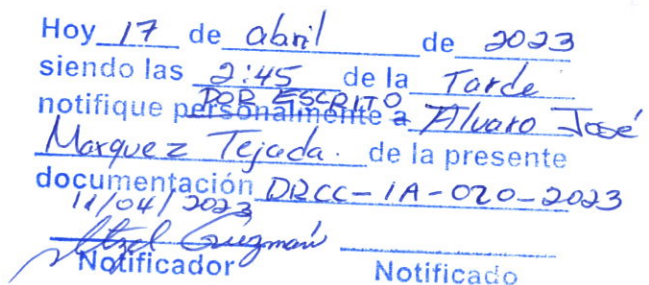 Hoy 17 de abril de 2023
siendo las 2:45 de la Tarde
POR ESCRITO
notifique personalmente a Alvaro José
Marquez Tejada. de la presente
documentación DRCC-IA-020-2023
11/04/2023
Itzel Guzmán
Notificador Notificado